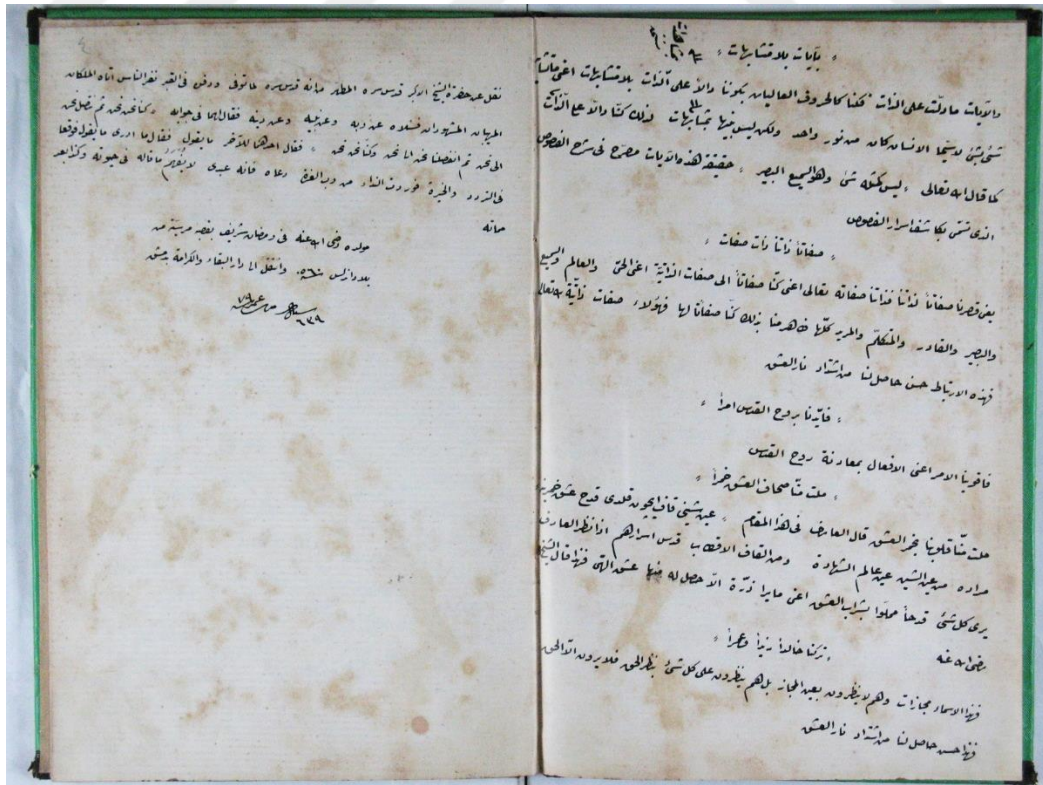 بآيات بلا متشابهات
والآيات مادلّت على الذات فكنا كالحروف العاليات بكوننا دالاً على الذات بلا متشابهات اعنى
شئ بشئ لاسيّما الانسان كان من نور واحد ولكن ليس فيها متشابهات لذلك كنّا دالاً على الذات
كما قال الله تعالى ليس كمثله شئ وهو السميع البصير حقيقة هذه الآيات مصرّح فى شرح الفصوص
الذى تسمّى بكاشف اسرار الفصوص
صفاتاً ذاتاً ذات صفات
يعنى فصرنا صفاتاً لذاتنا فذاتنا صفاته تعالى اعنى كنّا صفاتاً الى صفات الذاتية اعنى الحىّ والعالم والسميع
والبصير والقادر والمتكلّم والمريد كلّها بذلك كنّا صفاتاً لها فهؤلاء صفات ذاتية
فهذه الارتباط حسن حاصل لنا من اشتداد نار العشق
فايّدنا بروح القدس امراً
فاقوينا الامر اعنى الافعال بمعاونة روح القدس
ملت منّا صحاف العشق خمراً
ملت منّا قلوبنا بخمر العشق قال العارف فى هذا المقام عين شين قاف ايچون قلدى قدح عشق
مراده من عين الشين عين عالم الشهادة ومن القاف الاقطاب قدس اسرارهم اذا نظر العارف
يرى كل شئ قدحاً مملوّا بشراب العشق اعنى مايرا ذرّة الاّ حصل له منها عشق الهى فلهذا قال الشيخ
رضى الله عنه
تركنا خالداً زيداً وعمراً
فهذا الاسماء مجازات وهم لا ينظرون بعين المجاز بل هم ينظرون على كل شئ بنظر الحق فلا يرون الاّ الحق
فهذا حسن حاصل لنا من اشتداد نار العشق
نقل عن حضرة الشيخ الاكبر قدس سره المطهر انه قدس سره لما توفى ودفن فى القبر نفر الناس اتاه الملكان
المهيبان المشهوران فسئلاه عن ربه وعن نبيه وعن دينه فقال لهما فى جوابه وكنا نحن نحن ثم
الى نحن ثم انفصلنا نحن لما نحن وكنا نحن نحن فقال احدهما للآخر ما يقول فقال ما ادرى ما يقول فوقعا
فى التردد والحيرة فورد النداء من رب العزة دعاه فانه عبدى لا يفهم ما قاله فى حيوته وكذا بعد
مماته
مولده رضى الله عنه فى رمضان شريف بقصبه مرسيّة من
بلاد اندلس ٥٦٠ وانتقل الى دار البقاء والكرامة بدمشق
٦٣٩